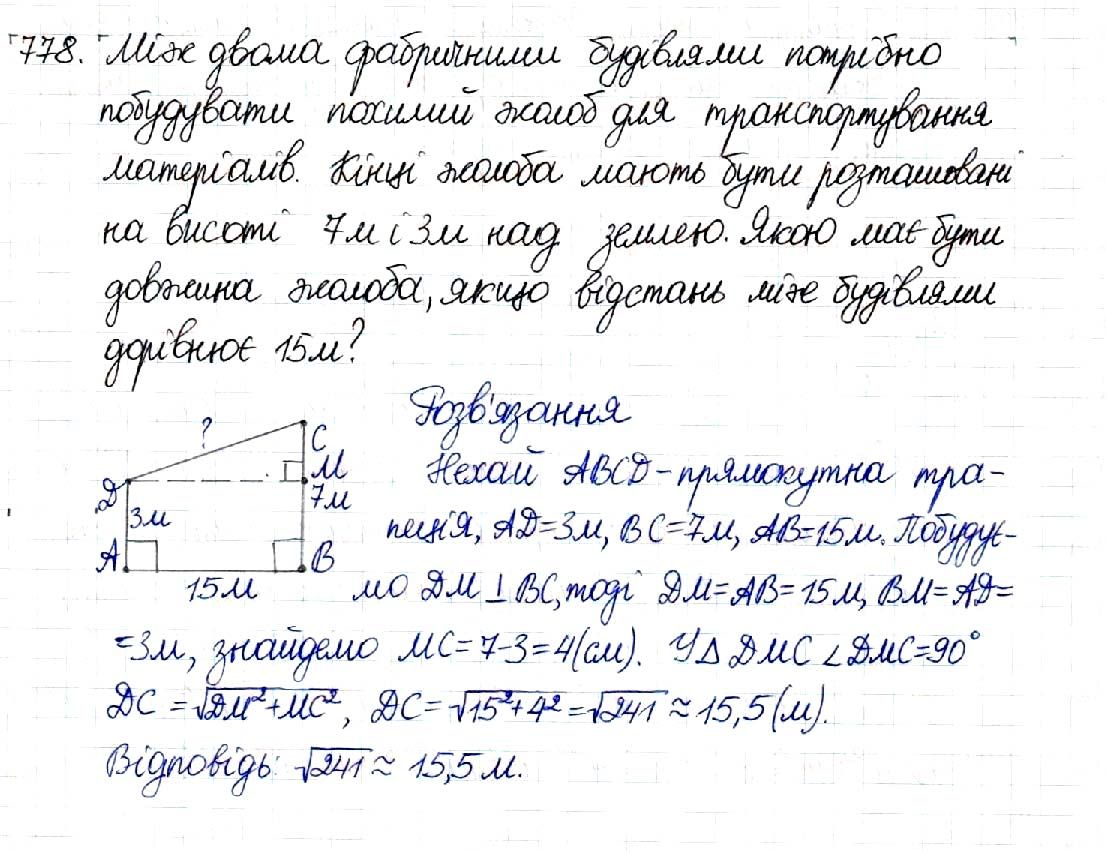 778. Між двома фабричними будівлями потрібно
побудувати похилий жолоб для транспортування
матеріалів. Кінці жолоба мають бути розташовані
на висоті 7м і 3м над землею. Якою має бути
довжина жолоба, якщо відстань між будівлями
дорівнює 15м?
Розв'язання
?
C
M
7м
D
3м
A
B
15м
Нехай ABCD - прямокутна тра-
пеція, AD=3м, BC=7м, AB=15м. Побудує-
мо DM⊥BC, тоді DM=AB=15м, BM=AD=
=3м, знайдемо MC=7-3=4(см). У△DMC ∠DMC=90°
DC=√DM²+MC², DC=√15²+4²=√241≈15,5(м).
Відповідь: √241≈15,5м.